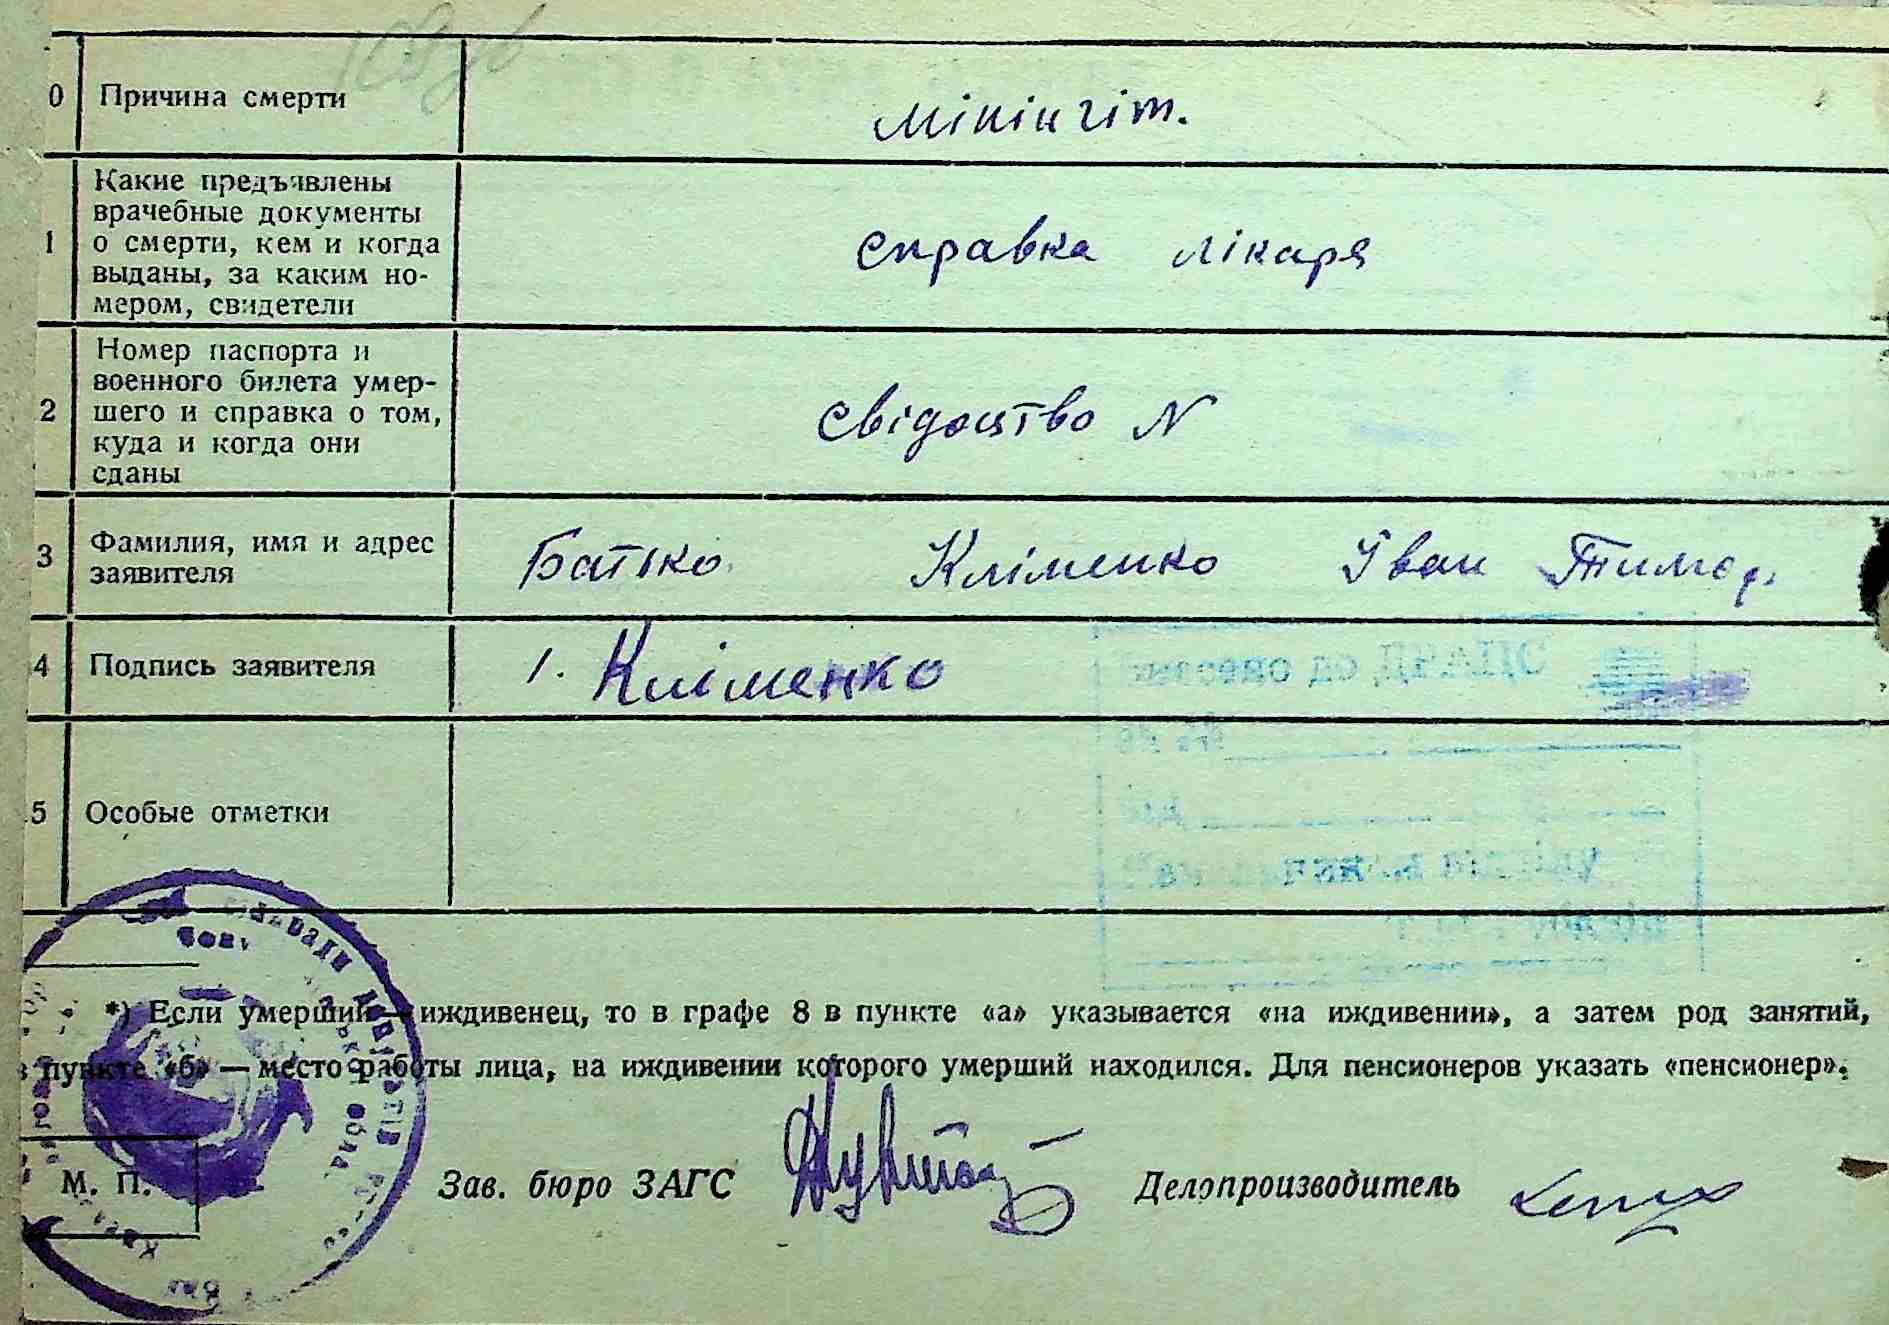 0 Причина смерти мінінгіт.
1 Какие предъявлены
врачебные документы
о смерти, кем и когда
выданы, за каким но-
мером, свидетели
справка лікаря
2 Номер паспорта и
военного билета умер-
шего и справка о том,
куда и когда они
сданы
свідоцтво N
3 Фамилия, имя и адрес
заявителя
Батько Кліменко Іван Тимоф.
4 Подпись заявителя 1. Кліменко
5 Особые отметки
*) Если умерший — иждивенец, то в графе 8 в пункте «а» указывается «на иждивении», а затем род занятий,
в пункте «б» — место работы лица, на иждивении которого умерший находился. Для пенсионеров указать «пенсионер».
М. П. Зав. бюро ЗАГС Делопроизводитель